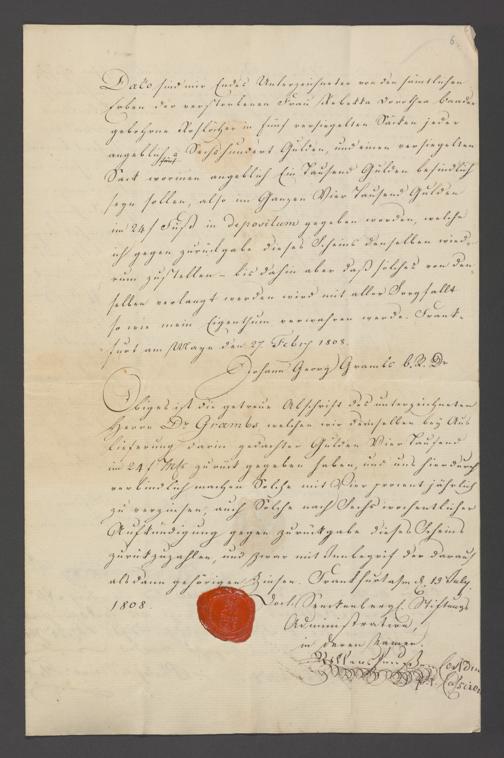 6
Dato sind mir Endes Unterzeichneten von den sämtlichen
Erben der verstorbenen Frau Rebekka Dorothea
gebohrne in fünf versiegelten Säcken jeder
angeblich Sechshundert Gulden, und einen versiegelten
Sack worinnen angeblich Ein Tausend Gulden befindlich
seyn sollen, also im Ganzen Vier Tausend Gulden
im 24 f Fuß in depositum gegeben worden, welche
ich gegen zurückgabe dieses Scheins denselben wiede-
rum zustellen – bis dahin aber daß solches von den-
selben verlangt werden wird mit aller Sorgfallt
so wie mein Eigenthum verwahren werde. Frank-
furt am Mayn den 27 Febry 1808.
Johann Georg Grambs b. R. Dr
Obiges ist die getreue Abschrift des unterzeichneten
Herrn Dr Grambs, welchen wir demselben bey Aus
lieferung darin gedachter Gulden Vier Tausend
im 24 f zurück gegeben haben, und uns hierdurch
verbindlich machen Solche mit Vier procent jährlich
zu verzinsen, auch Solche nach Sechs wochentlicher
Aufkündigung gegen zurückgabe dieses Scheins
zurückzuzahlen, und zwar mit Innbegrif der darauf
alsdann gehörigen Zinsen. Frankfurt a/m d.
1808. Doct. Senckenberg. Stiftungs
Administration,
in deren Namen,